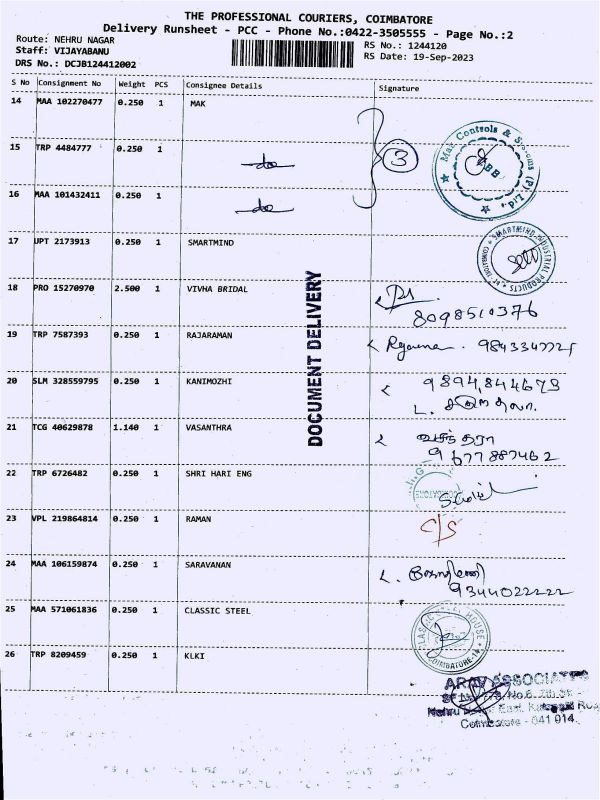 THE PROFESSIONAL COURIERS, COIMBATORE
Delivery Runsheet - PCC - Phone No.:0422-3505555 - Page No.:2
Route: NEHRU NAGAR
Staff: VIJAYABANU
DRS No.: DCJB124412002
RS No.: 1244120
RS Date: 19-Sep-2023
S No Consignment No Weight PCS Consignee Details Signature
14 MAA 102270477 0.250 1 MAK
3
Mak Controls & Systems (P) Ltd.,
15 TRP 4484777 0.250 1 do
16 MAA 101432411 0.250 1 do
17 UPT 2173913 0.250 1 SMARTMIND
SMARTMIND INDUSTRIAL PRODUCTS
18 PRO 15270970 2.500 1 VIVHA BRIDAL
8098510376
DOCUMENT DELIVERY
19 TRP 7587393 0.250 1 RAJARAMAN
20 SLM 328559795 0.250 1 KANIMOZHI
9894,844673
21 TCG 40629878 1.140 1 VASANTHRA
வசந்தரா
9677887462
22 TRP 6726482 0.250 1 SHRI HARI ENG
23 VPL 219864814 0.250 1 RAMAN
C/S
24 MAA 106159874 0.250 1 SARAVANAN
9344022222
25 MAA 571061836 0.250 1 CLASSIC STEEL
HOUSE
COIMBATORE-14
26 TRP 8209459 0.250 1 KLKI
ARAV ASSOCIATES
Nehru Nagar East,
Coimbatore - 641 014.